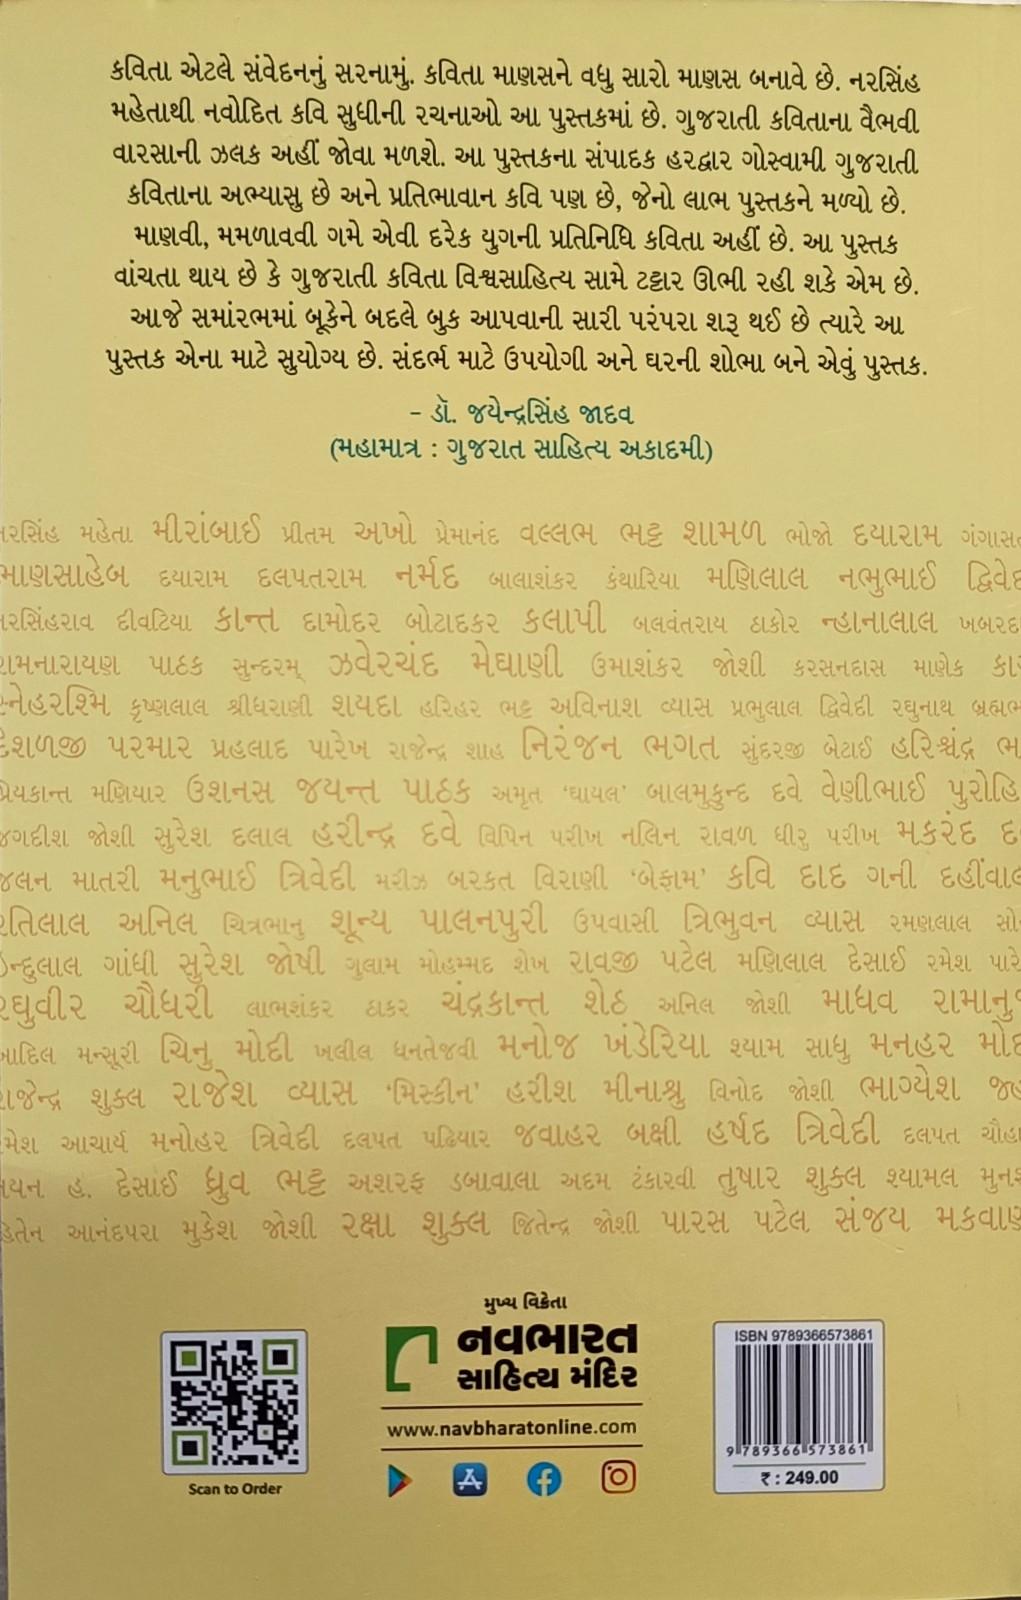 કવિતા એટલે સંવેદનનું સરનામું. કવિતા માણસને વધુ સારો માણસ બનાવે છે. નરસિંહ
મહેતાથી નવોદિત કવિ સુધીની રચનાઓ આ પુસ્તકમાં છે. ગુજરાતી કવિતાના વૈભવી
વારસાની ઝલક અહીં જોવા મળશે. આ પુસ્તકના સંપાદક હરદ્વાર ગોસ્વામી ગુજરાતી
કવિતાના અભ્યાસુ છે અને પ્રતિભાવાન કવિ પણ છે, જેનો લાભ પુસ્તકને મળ્યો છે.
માણવી, મમળાવવી ગમે એવી દરેક યુગની પ્રતિનિધિ કવિતા અહીં છે. આ પુસ્તક
વાંચતા થાય છે કે ગુજરાતી કવિતા વિશ્વસાહિત્ય સામે ટટ્ટાર ઊભી રહી શકે એમ છે.
આજે સમાંરભમાં બૂકેને બદલે બુક આપવાની સારી પરંપરા શરૂ થઈ છે ત્યારે આ
પુસ્તક એના માટે સુયોગ્ય છે. સંદર્ભ માટે ઉપયોગી અને ઘરની શોભા બને એવું પુસ્તક.
- ડૉ. જયેન્દ્રસિંહ જાદવ
(મહામાત્ર : ગુજરાત સાહિત્ય અકાદમી)
મહેતા મીરાંબાઈ પ્રીતમ અખો પ્રેમાનંદ વલ્લભ ભટ્ટ શામળ ભોજો દયારામ
દયારામ દલપતરામ નર્મદ બાલાશંકર કંથારિયા મણિલાલ નભુભાઈ
દીવટિયા કાન્ત દામોદર બોટાદકર કલાપી બલવંતરાય ઠાકોર ન્હાનાલાલ
પાઠક સુન્દરમ્ ઝવેરચંદ મેઘાણી ઉમાશંકર જોશી કરસનદાસ માણેક
કૃષ્ણલાલ શ્રીધરાણી શયદા હરિહર ભટ્ટ અવિનાશ વ્યાસ પ્રભુલાલ દ્વિવેદી રઘુનાથ
પરમાર પ્રહલાદ પારેખ રાજેન્દ્ર શાહ નિરંજન ભગત સુંદરજી બેટાઈ હરિશ્ચંદ્ર
મણિયાર ઉશનસ જયન્ત પાઠક અમૃત ‘ઘાયલ’ બાલમુકુન્દ દવે વેણીભાઈ
જોશી સુરેશ દલાલ હરીન્દ્ર દવે વિપિન પરીખ નલિન રાવળ ધીરુ પરીખ મકરંદ
માતરી મનુભાઈ ત્રિવેદી મરીઝ બરકત વિરાણી ‘બેફામ’ કવિ દાદ ગની
અનિલ ચિત્રભાનુ શૂન્ય પાલનપુરી ઉપવાસી ત્રિભુવન વ્યાસ રમણલાલ
ગાંધી સુરેશ જોષી ગુલામ મોહમ્મદ શેખ રાવજી પટેલ મણિલાલ દેસાઈ રમેશ
ચૌધરી લાભશંકર ઠાકર ચંદ્રકાન્ત શેઠ અનિલ જોશી માધવ
મન્સૂરી ચિનુ મોદી ખલીલ ધનતેજવી મનોજ ખંડેરિયા શ્યામ સાધુ મનહર
શુક્લ રાજેશ વ્યાસ ‘મિસ્કીન’ હરીશ મીનાશ્રુ વિનોદ જોશી ભાગ્યેશ
આચાર્ય મનોહર ત્રિવેદી દલપત પઢિયાર જવાહર બક્ષી હર્ષદ ત્રિવેદી દલપત
હ. દેસાઈ ધ્રુવ ભટ્ટ અશરફ ડબાવાલા અદમ ટંકારવી તુષાર શુક્લ શ્યામલ
આનંદપરા મુકેશ જોશી રક્ષા શુક્લ જિતેન્દ્ર જોશી પારસ પટેલ સંજય
મુખ્ય વિક્રેતા
નવભારત
સાહિત્ય મંદિર
www.navbharatonline.com
Scan to Order
ISBN 9789366573861
9 789366 573861
₹ : 249.00